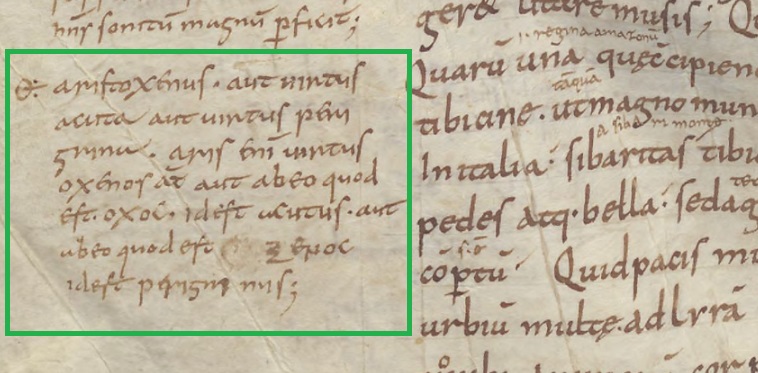 nr̄ sonitū magnū ꝑficit;
aristoxenus · aut uirtus
acuta aut uirtus peri
grina · aris enī uirtus
oxenos at̄ aut ab eo quod
est · oxoc · idest acutus · aut
ab eo quod est Ξenoc
idest perigrinus;
gere& litare musis; Q
i· regina amazonū
Quarū una quęc̄cipien
tāqua
tibicine · ut magno mun
In italia · sibaritas tibi
pedes atq · bella · sed aq
coꝑtū · Quid pacis m
urbiū multę · ad lyrā